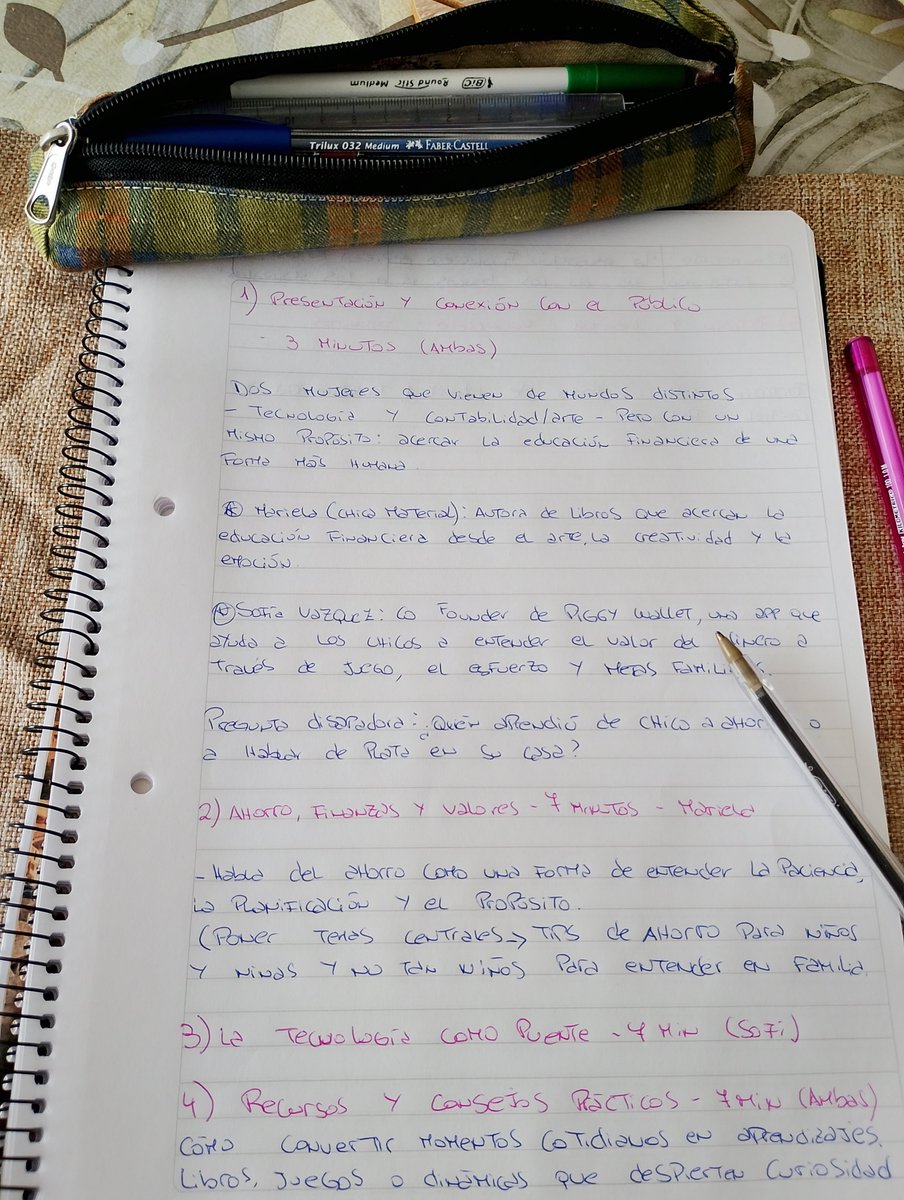 BIC Round Stic Medium
Trilux 032 Medium FABER-CASTELL
1) Presentación y conexión con el Público
- 3 minutos (Ambas)
Dos mujeres que vienen de mundos distintos
- Tecnología y contabilidad/arte - pero con un
mismo propósito: acercar la educación financiera de una
forma más humana.
Mariela (Chica Material): Autora de libros que acercan la
educación financiera desde el arte, la creatividad y la
emoción.
Sofía Vazquez: Co Founder de Piggy Wallet, una app que
ayuda a los chicos a entender el valor del dinero a
través de juego, el esfuerzo y metas familiares.
Pregunta disparadora: ¿Quén aprendió de chico a ahorrar o
a hablar de plata en su casa?
2) Ahorro, finanzas y valores - 7 minutos - Mariela
- Habla del ahorro como una forma de entender la paciencia,
la planificación y el propósito.
(Poner temas centrales → Tips de ahorro para niños
y niñas y no tan niños para entender en familia.
3) La tecnología como puente - 7 min (Sofi)
4) Recursos y consejos prácticos - 7 min (Ambas)
Cómo convertir momentos cotidianos en aprendizajes.
Libros, juegos o dinámicas que despierten curiosidad